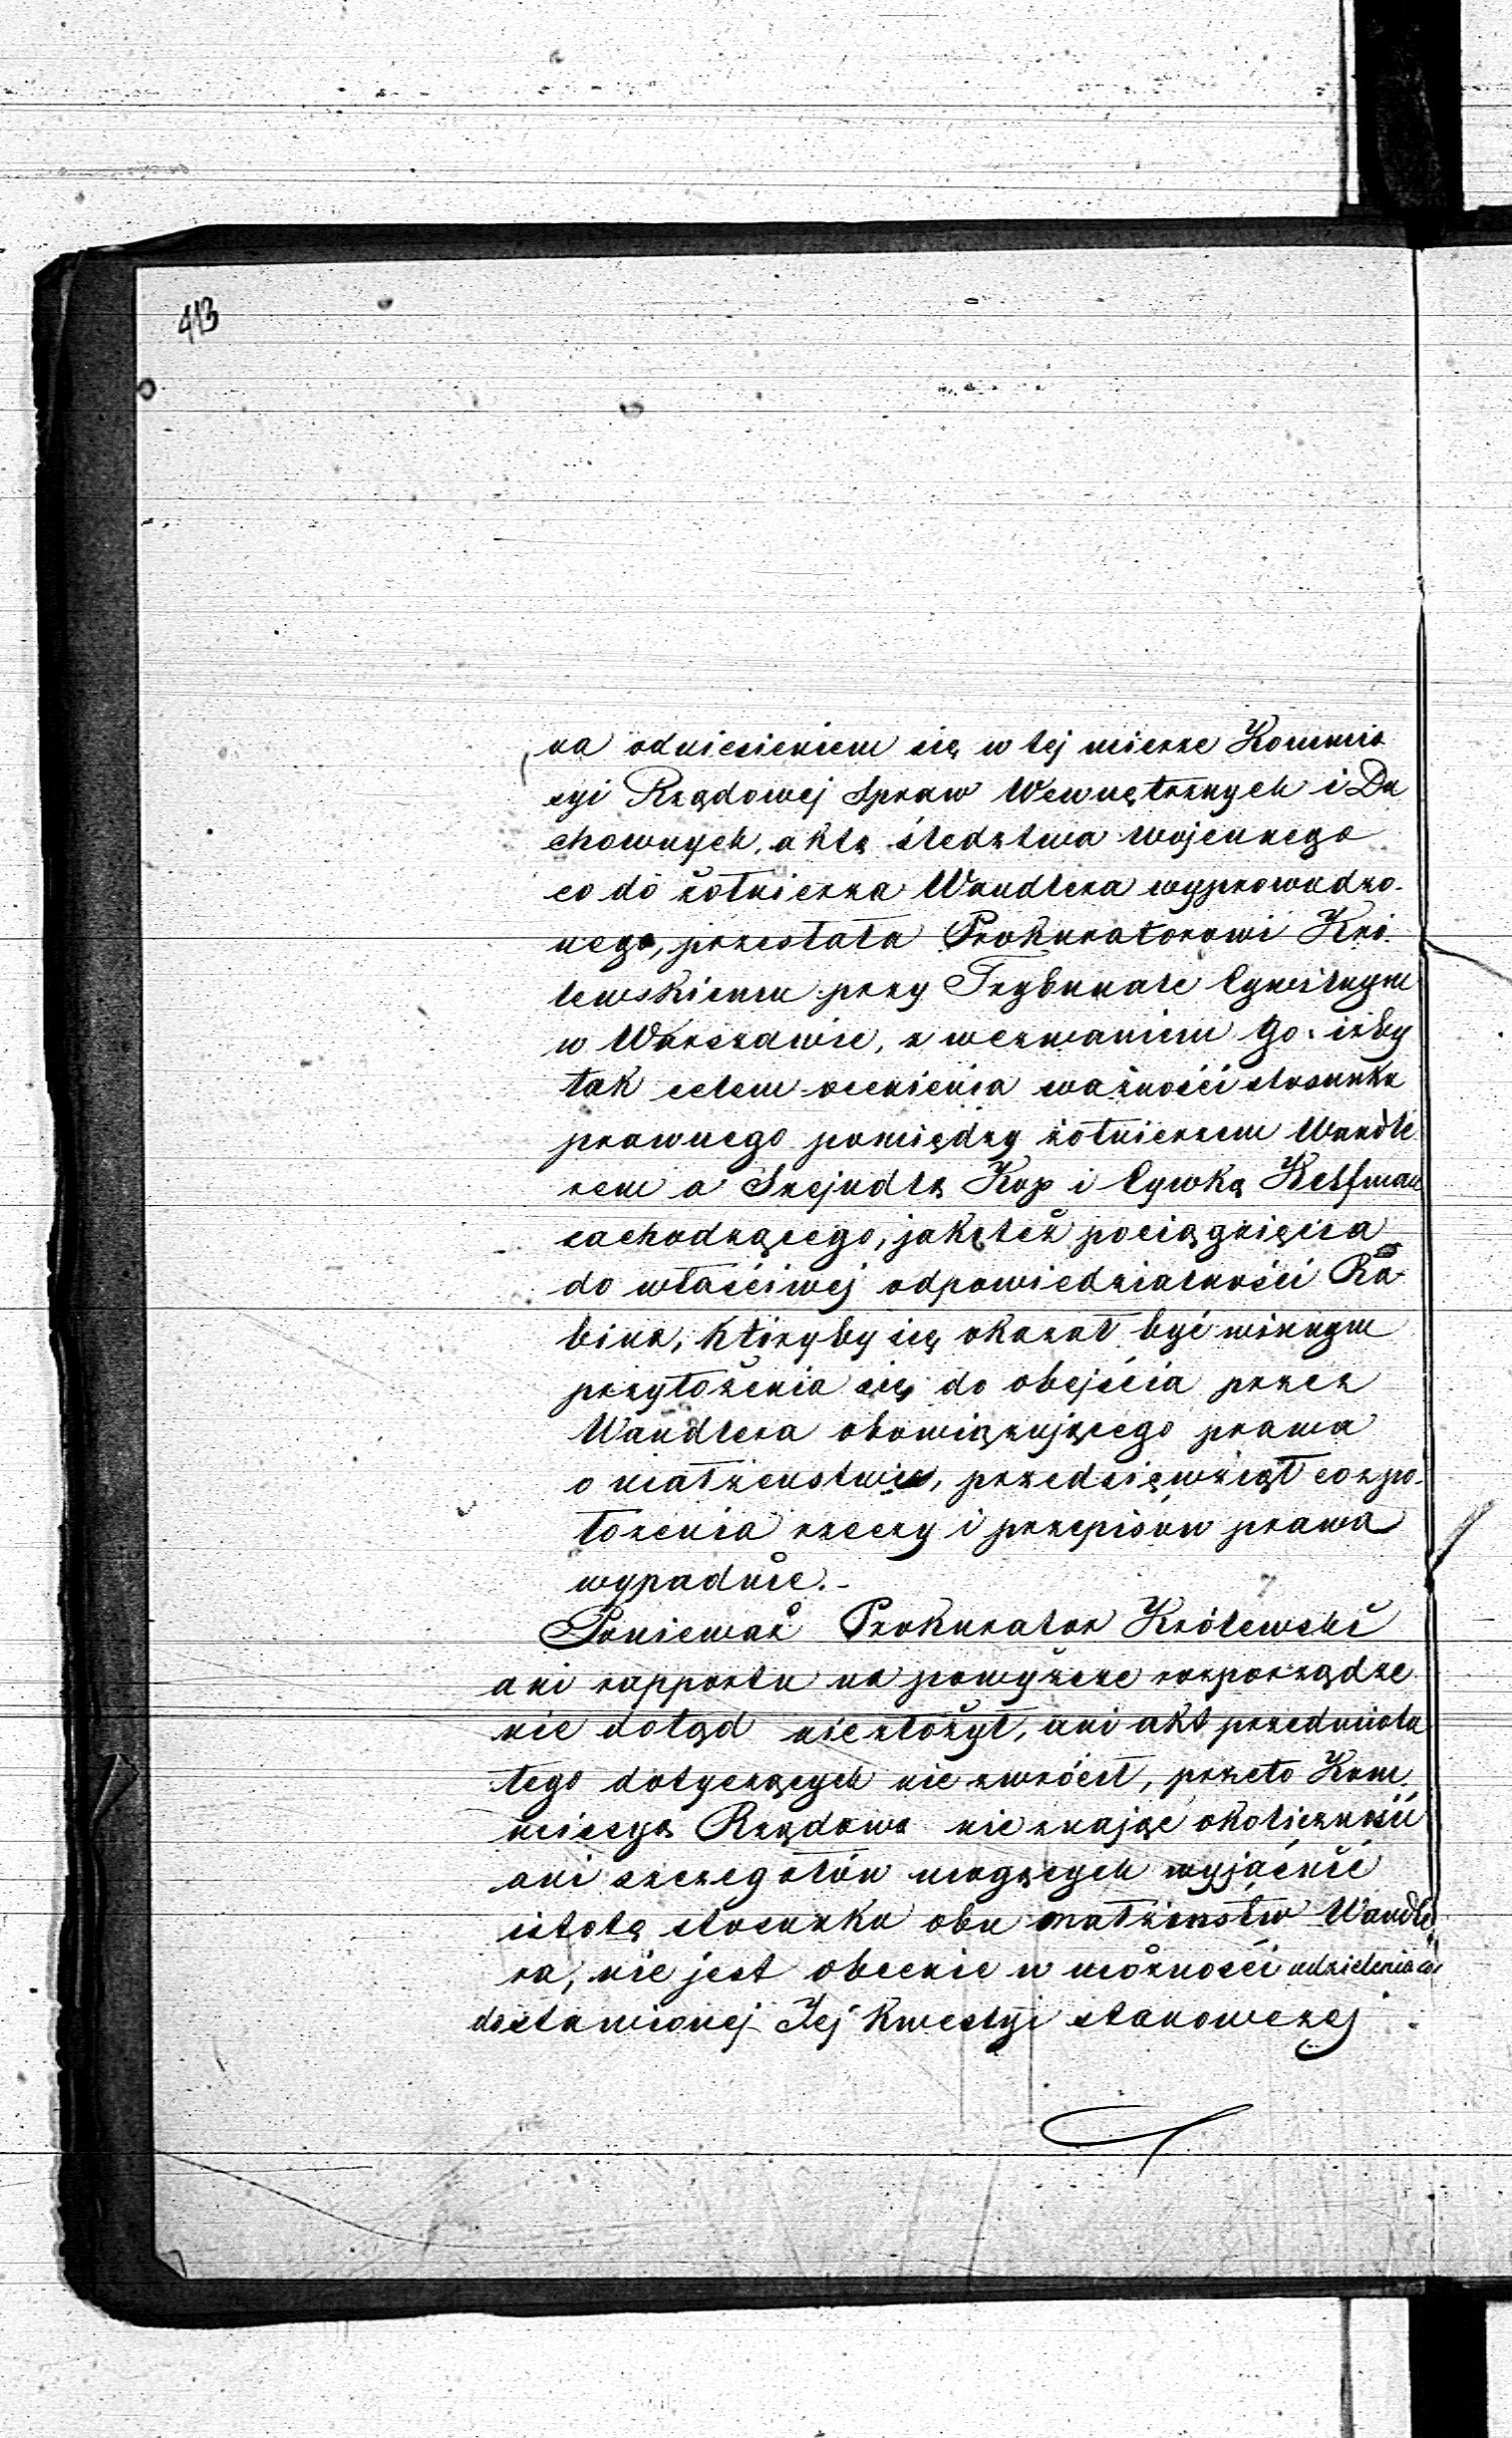 413
na odniesieniem się w tej mierze Kommis
syi Rządowej Spraw Wewnętrznych i Du
chownych, akta śledztwa wojennego
co do żołnierza Wandlera wyprowadzo-
nego, przesłała Prokuratorowi Kró-
lewskiemu przy Trybunale Cywilnym
w Warszawie, z wezwaniem go, iżby
tak celem ocenienia ważności stosunku
prawnego pomiędzy żołnierzem Wandle
rem a Szejndlą Kop i Cywką Helfman
zachodzącego, jakoteż pociągnięcia
do właściwej odpowiedzialności Ra-
bina, któryby się okazał być winnym
przyłożenia się do obejścia przez
Wandlera obowiązującego prawa
o małżeństwie, przedsięwziął co z po-
łożenia rzeczy i przepisów prawa
wypadnie.-
Ponieważ Prokurator Królewski
ani rapportu na powyższe rozporządze
nie dotąd niezłożył, ani akt przedmiotu
tego dotyczących nie zwrócił, przeto Kom-
missya Rządowa nie znając okoliczności
ani szczegółów mogących wyjaśnić
istotę stosunku obu małżeństw Wandle
ra, nie jest obecnie w możności udzielenia co
dostawionej Jej kwestyi stanowczej